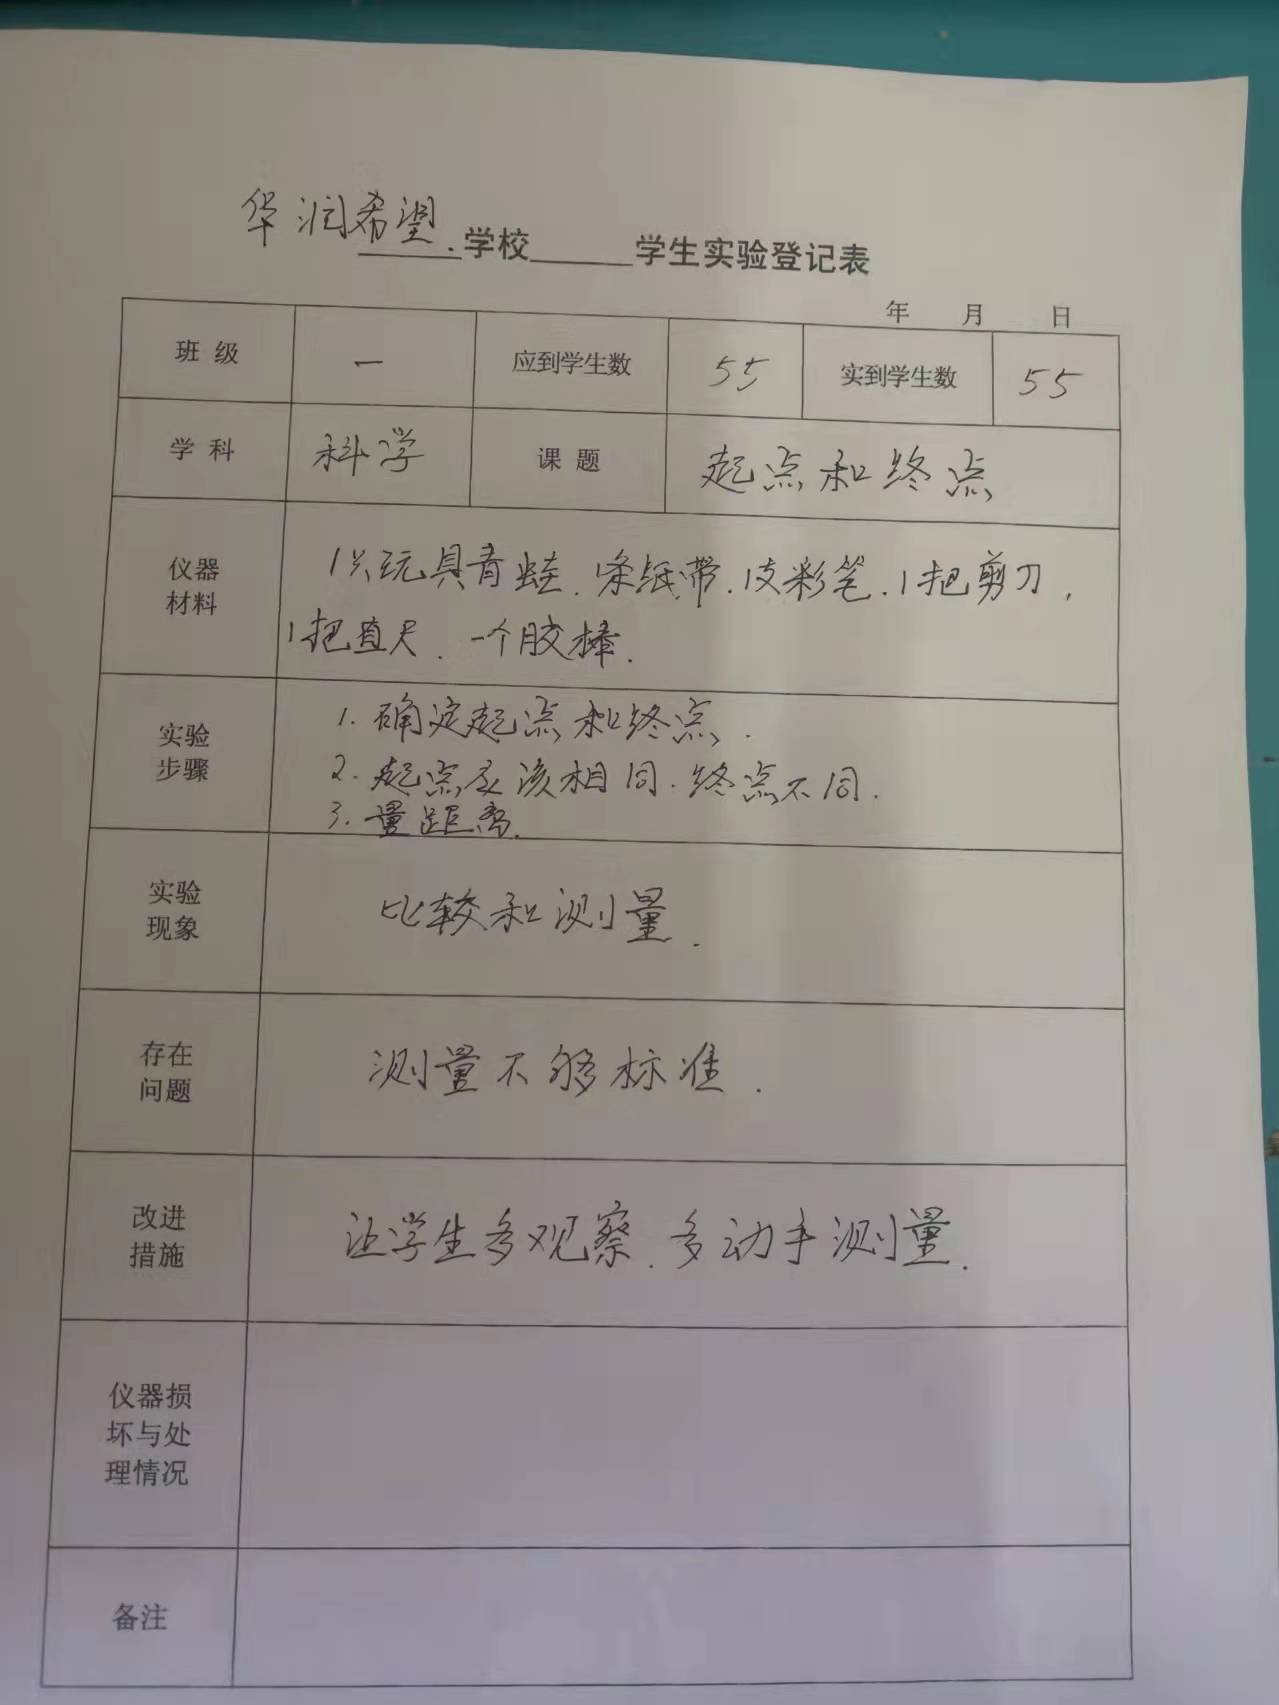 华润希望.学校______学生实验登记表
年 月 日
班级 一 应到学生数 55 实到学生数 55
学科 科学 课题 起点和终点
仪器
材料
1只玩具青蛙.1条纸带.1支彩笔.1把剪刀,
1把直尺.一个胶棒.
实验
步骤
1.确定起点和终点.
2.起点应该相同.终点不同.
3.量距离.
实验
现象
比较和测量.
存在
问题
测量不够标准.
改进
措施
让学生多观察.多动手测量.
仪器损
坏与处
理情况
备注